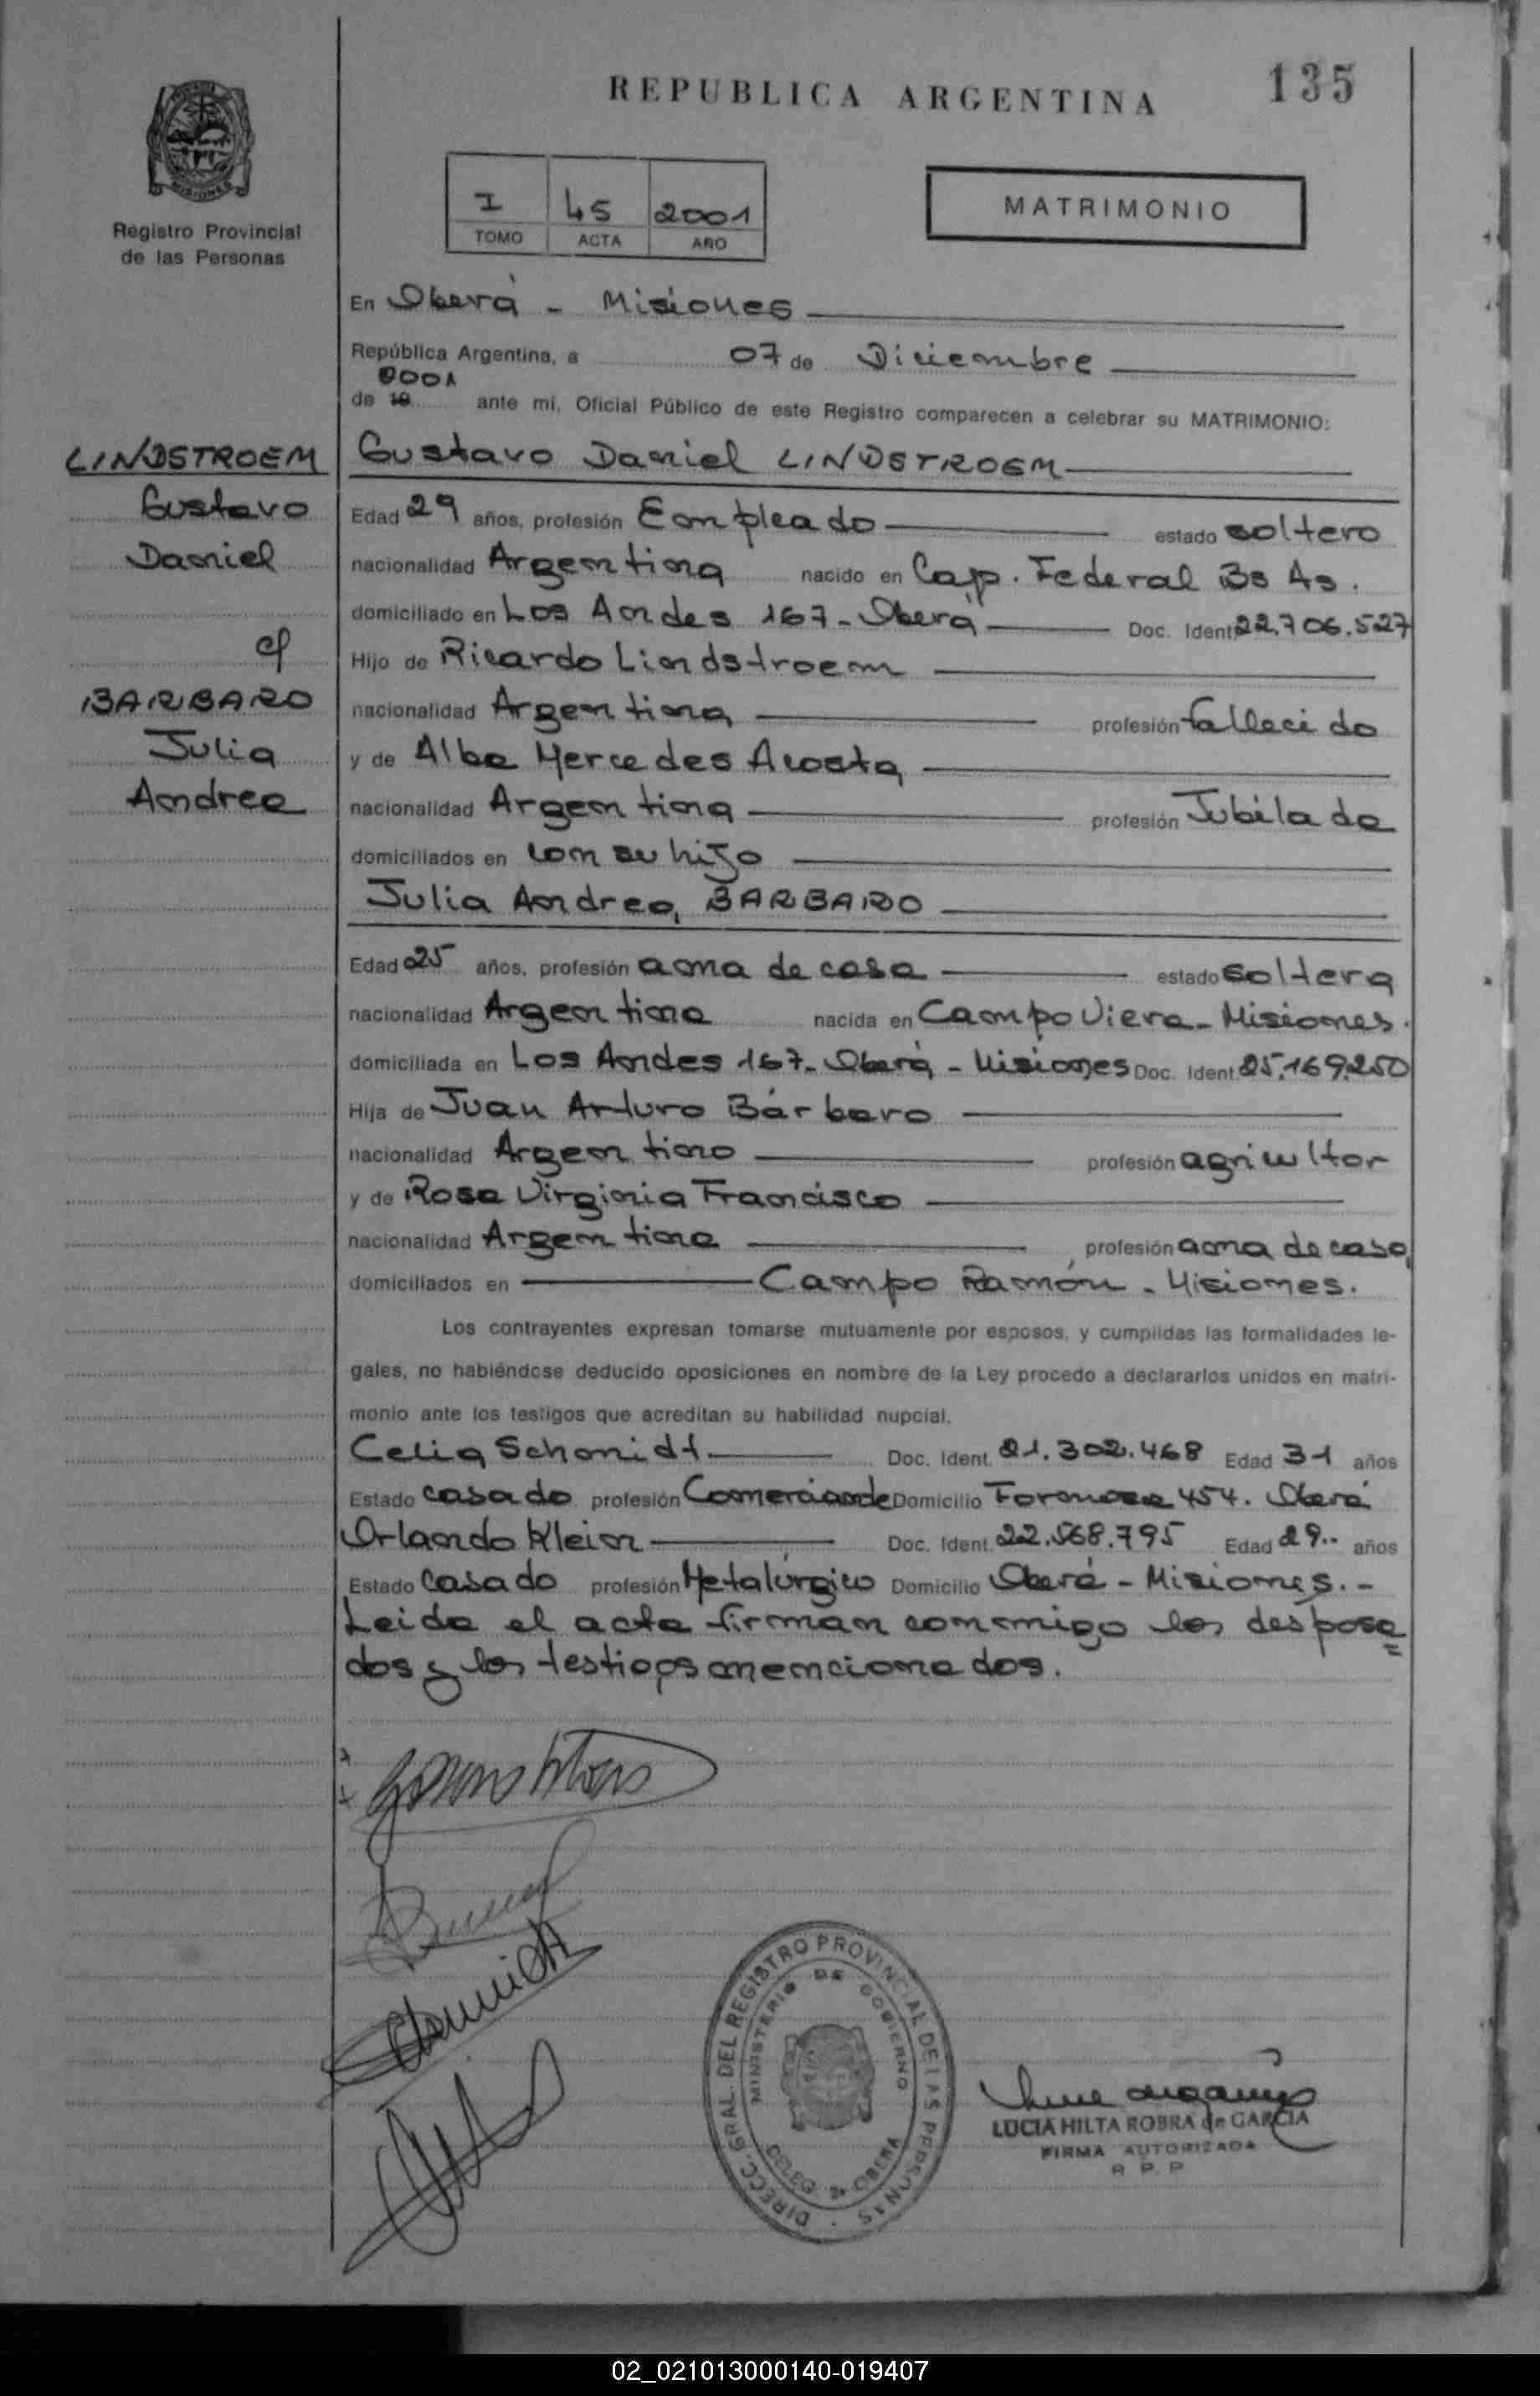 REPUBLICA ARGENTINA
135
MISIONES
Registro Provincial
de las Personas
I 45 2001
TOMO ACTA AÑO
MATRIMONIO
En Oberá - Misiones
República Argentina, a 07 de Diciembre
2001
de 19 ante mí, Oficial Público de este Registro comparecen a celebrar su MATRIMONIO:
LINDSTROEM
Gustavo
Daniel
c/
BARBARO
Julia
Andrea
Gustavo Daniel LINDSTROEM
Edad 29 años, profesión Empleado estado soltero
nacionalidad Argentina nacido en Cap. Federal Bs As.
domiciliado en Los Andes 167 - Oberá Doc. Ident 22.706.527
Hijo de Ricardo Lindstroem
nacionalidad Argentina profesión fallecido
y de Alba Mercedes Acosta
nacionalidad Argentina profesión Jubilada
domiciliados en con su hijo
Julia Andrea BARBARO
Edad 25 años, profesión ama de casa estado soltera
nacionalidad Argentina nacida en Campo Viera - Misiones.
domiciliada en Los Andes 167 - Oberá - Misiones Doc. Ident. 25.169.250
Hija de Juan Arturo Bárbaro
nacionalidad Argentino profesión agricultor
y de Rosa Virginia Francisco
nacionalidad Argentina profesión ama de casa
domiciliados en Campo Ramón - Misiones.
Los contrayentes expresan tomarse mutuamente por esposos, y cumplidas las formalidades le-
gales, no habiéndose deducido oposiciones en nombre de la Ley procedo a declararlos unidos en matri-
monio ante los testigos que acreditan su habilidad nupcial.
Celia Schmidt Doc. Ident. 21.302.468 Edad 31 años
Estado casado profesión Comerciante Domicilio Formosa 454. Oberá
Orlando Klein Doc. Ident. 22.568.795 Edad 29.. años
Estado Casado profesión Metalúrgico Domicilio Oberá - Misiones.-
Leida el acta firman conmigo los desposa=
dos y los testigos mencionados.
DIRECC. GRAL. DEL REGISTRO PROVINCIAL DE LAS PERSONAS
MINISTERIO DE GOBIERNO
DELEG. OBERA
LUCIA HILTA ROBRA de GARCIA
FIRMA AUTORIZADA
R P P
02_021013000140-019407